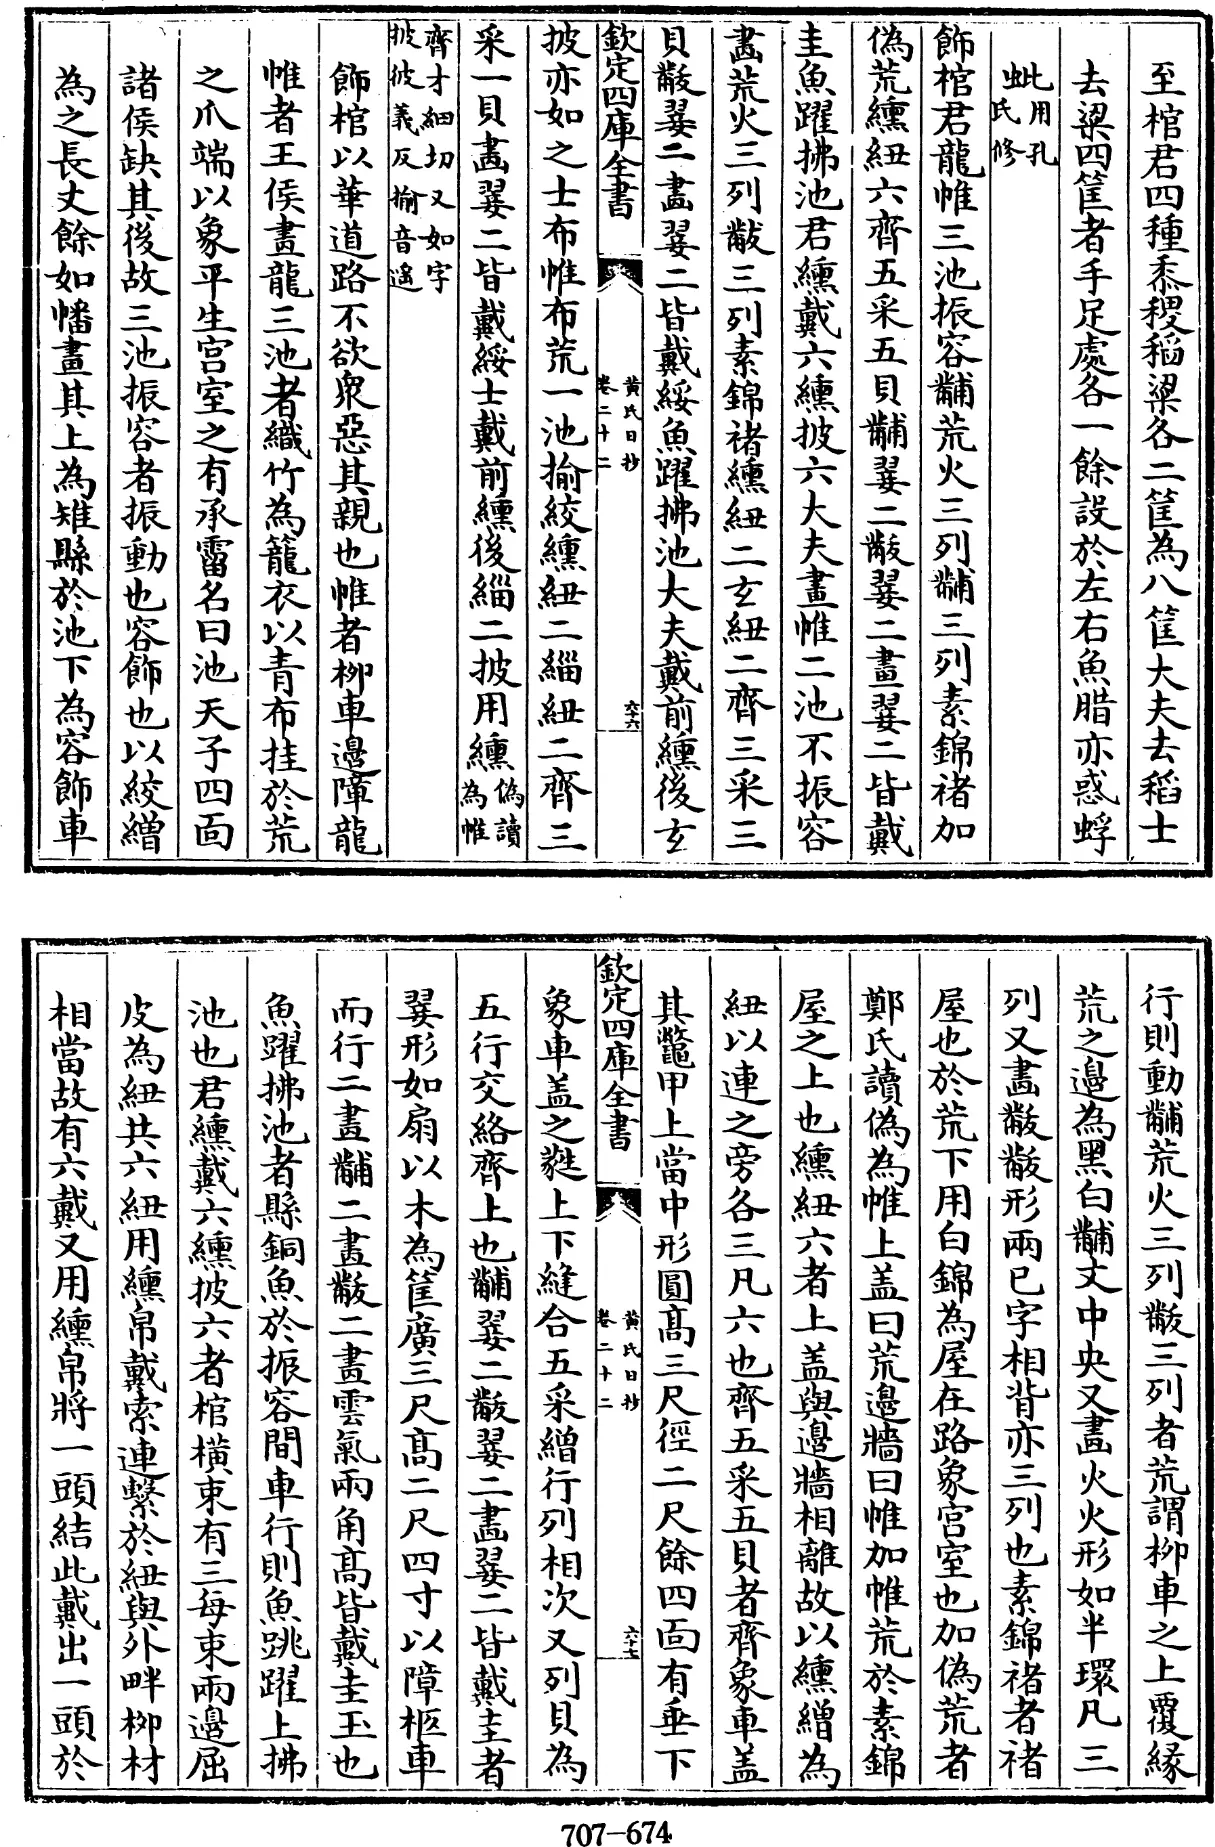 至棺君四種黍稷稻粱各二筐為八筐大夫去稻士
去粱四筐者手足處各一餘設於左右魚腊亦惑蚍蜉
蚍用孔氏修
飾棺君龍帷三池振容黼荒火三列黼三列素錦褚加
偽荒纁紐六齊五采五貝黼翣二黻翣二畫翣二皆戴
圭魚躍拂池君纁戴六纁披六大夫畫帷二池不振容
畫荒火三列黻三列素錦褚纁紐二玄紐二齊三采三
貝黻翣二畫翣二皆戴綏魚躍拂池大夫戴前纁後玄
欽定四庫全書
黄氏日抄
卷二十二
六十六
披亦如之士布帷布荒一池揄絞纁紐二緇紐二齊三
采一貝畫翣二皆戴綏士戴前纁後緇二披用纁偽讀為帷
齊才細切又如字
披彼義反揄音遙
飾棺以華道路不欲衆惡其親也帷者柳車邊障龍
帷者王侯畫龍三池者織竹為籠衣以青布挂於荒
之爪端以象平生宫室之有承霤名曰池天子四面
諸侯缺其後故三池振容者振動也容飾也以絞繒
為之長丈餘如幡畫其上為雉縣於池下為容飾車
行則動黼荒火三列黻三列者荒謂柳車之上覆緣
荒之邊為黑白黼文中央又畫火火形如半環凡三
列又畫黻黻形兩已字相背亦三列也素錦褚者褚
屋也於荒下用白錦為屋在路象宫室也加偽荒者
鄭氏讀偽為帷上盖曰荒邊牆曰帷加帷荒於素錦
屋之上也纁紐六者上盖與邊牆相離故以纁繒為
紐以連之旁各三凡六也齊五采五貝者齊象車盖
其鼈甲上當中形圓髙三尺徑二尺餘四面有垂下
欽定四庫全書
黄氏日抄
卷二十二
六十七
象車盖之蕤上下縫合五采繒行列相次又列貝為
五行交絡齊上也黼翣二黻翣二畫翣二皆戴圭者
翣形如扇以木為筐廣三尺髙二尺四寸以障柩車
而行二畫黼二畫黻二畫雲氣兩角髙皆戴圭玉也
魚躍拂池者縣銅魚於振容間車行則魚跳躍上拂
池也君纁戴六纁披六者棺横束有三每束兩邊屈
皮為紐共六紐用纁帛戴索連繫於紐與外畔柳材
相當故有六戴又用纁帛將一頭結此戴出一頭於
707-674